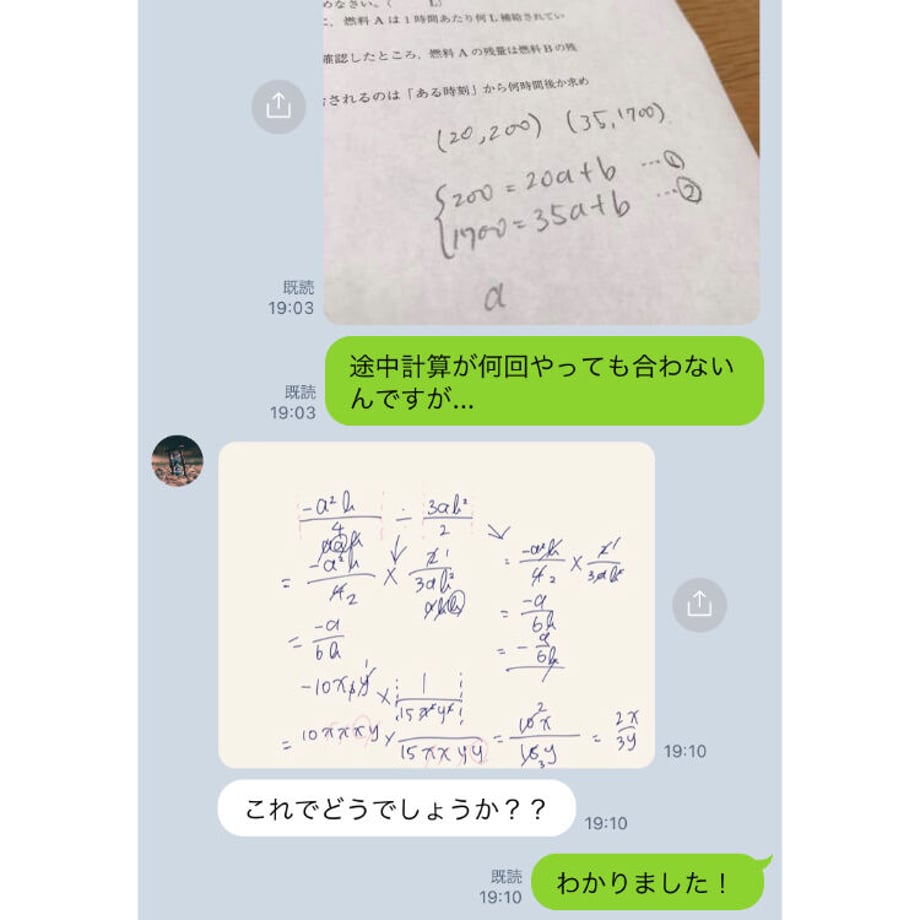 めなさい。( L)
に、燃料 A は 1 時間あたり何 L 補給されてい
確認したところ、燃料 A の残量は燃料 B の残
されるのは「ある時刻」から何時間後か求め
(20,200) (35,1700)
200 = 20a+b …①
1700 = 35a+b …②
a
既読
19:03
途中計算が何回やっても合わない
んですが...
既読
19:03
-a²b/4 ÷ 3ab²/2
= -a²b/4 2 × 2 1/3ab²
= -a²b/4 2 × 2 1/3ab²
= -a/6b
= -a/6b
= - a/6b
-10x³y × 1/15x²y²
= 10xxxy × 1/15xxyy = 10 2x/15 3y = 2x/3y
19:10
これでどうでしょうか？？
19:10
既読
19:10
わかりました！